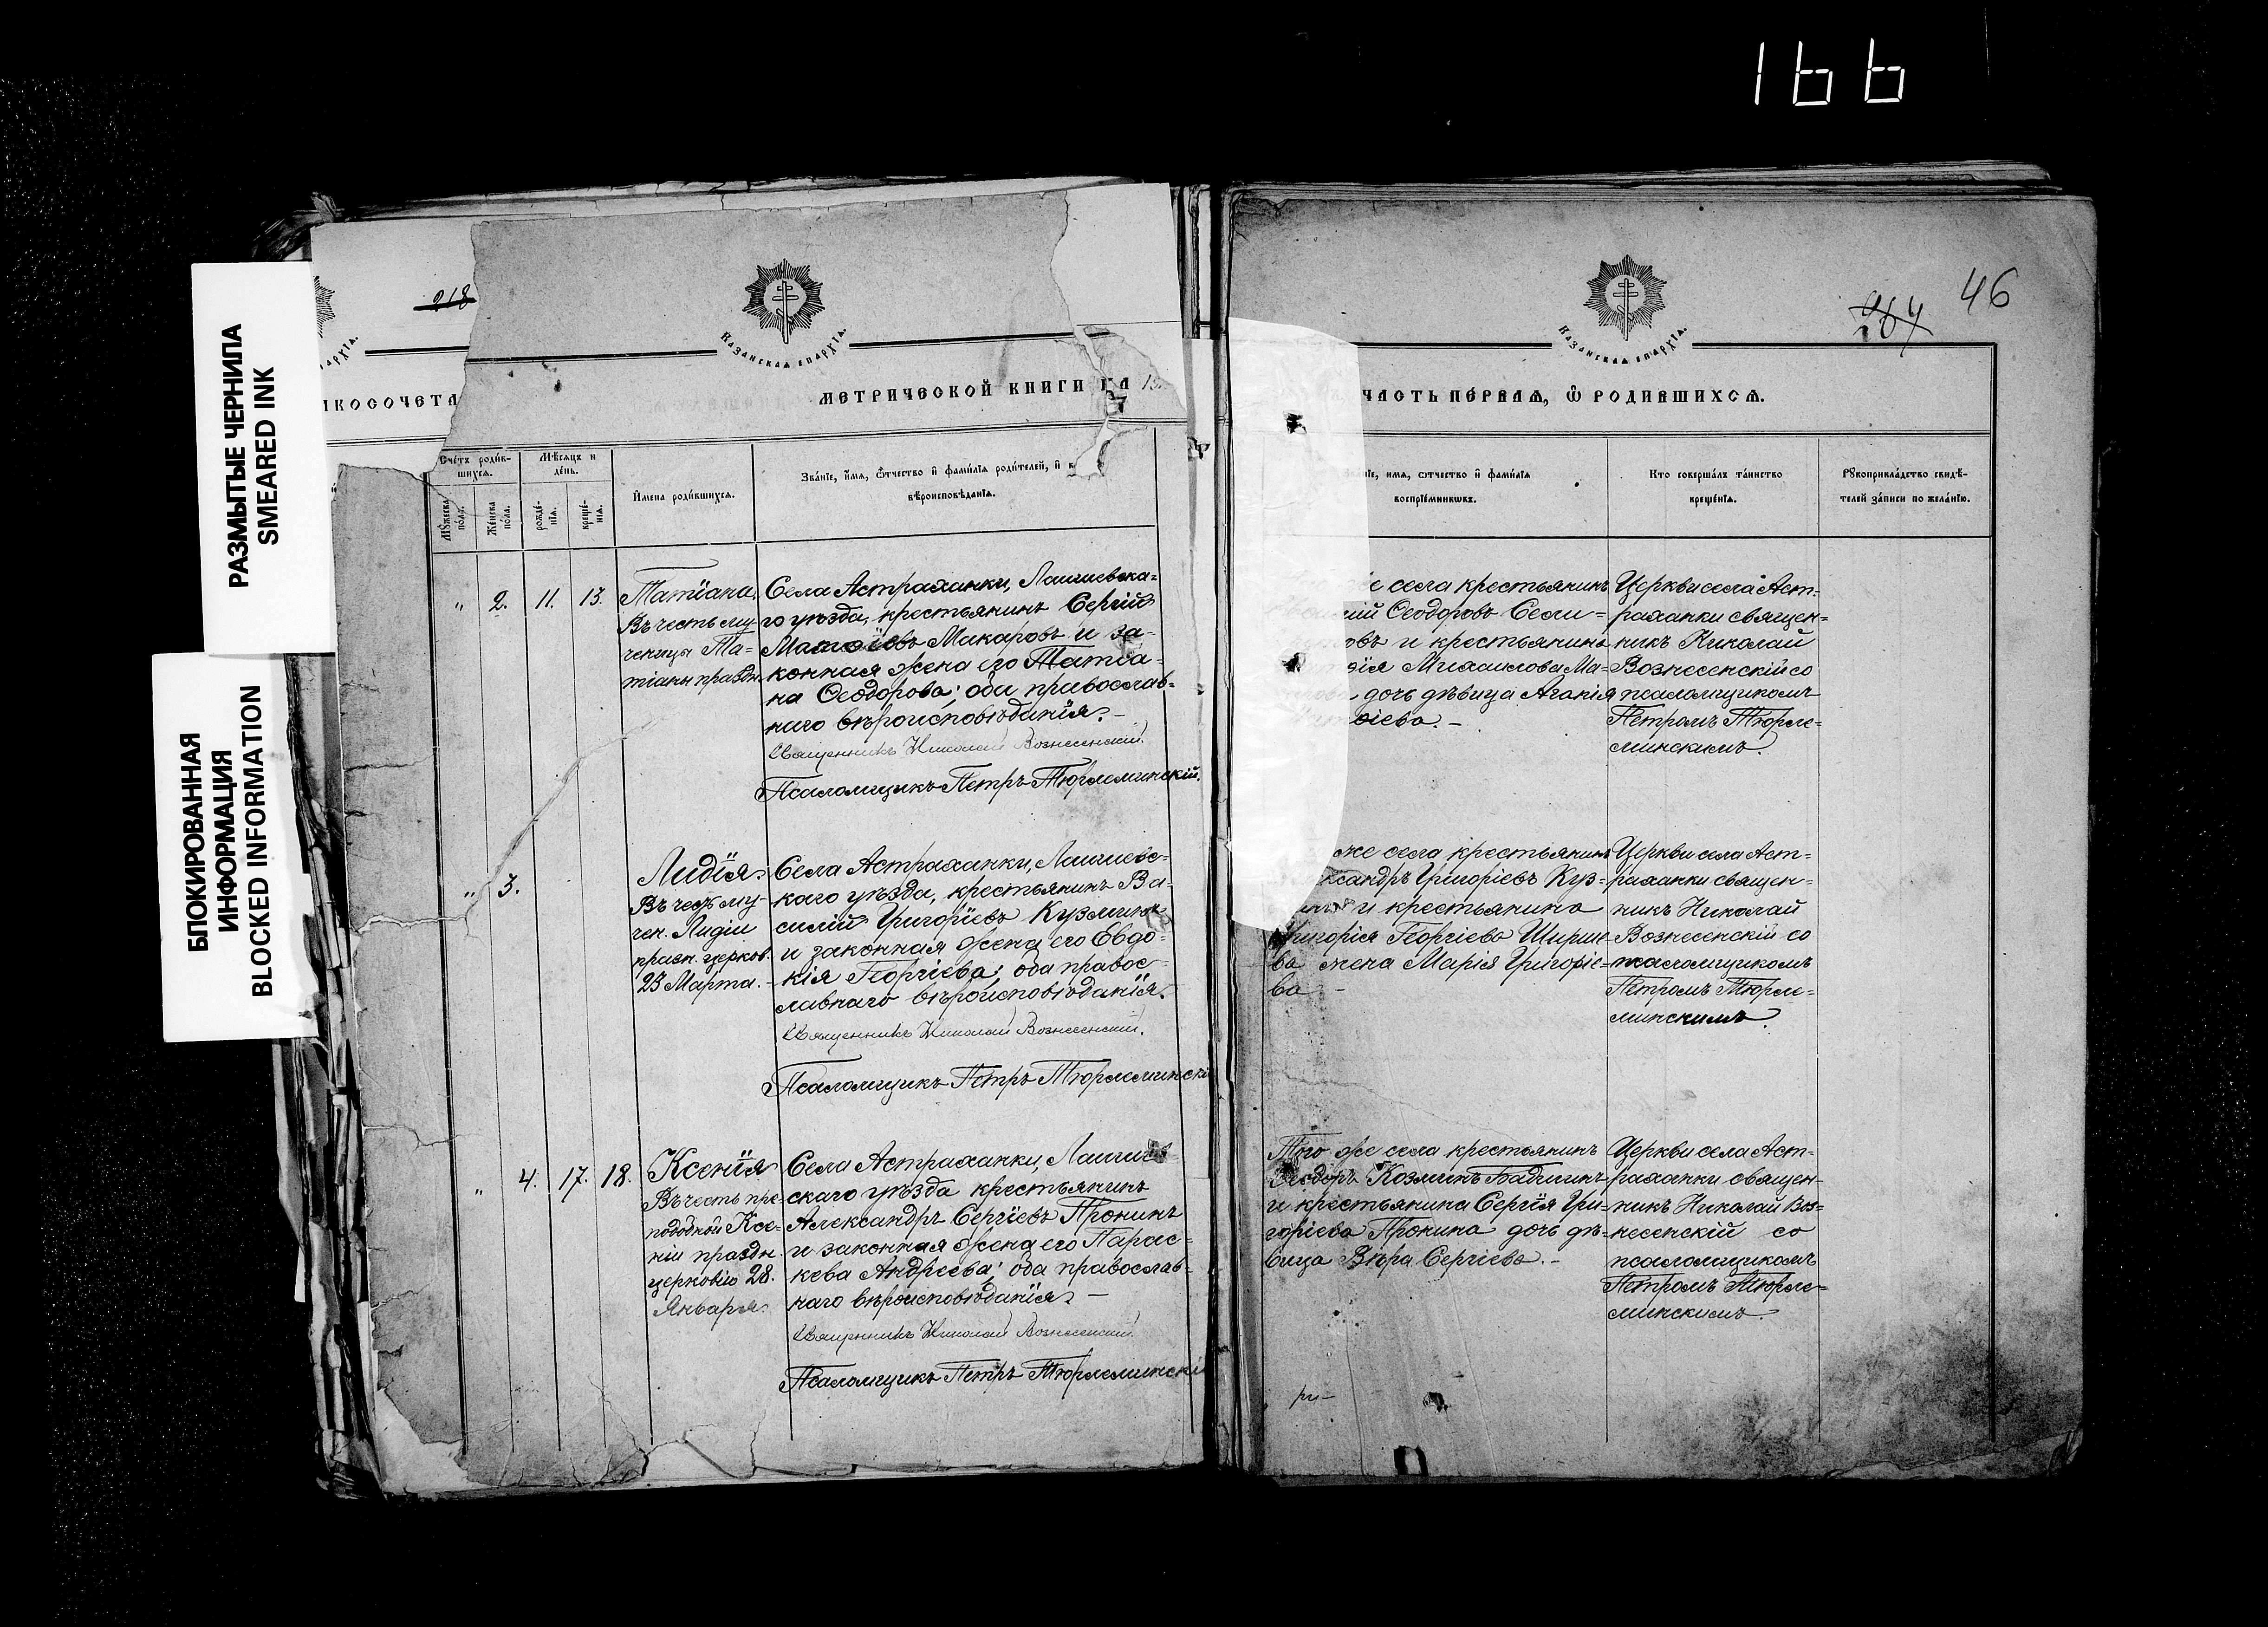 166
РАЗМЫТЫЕ ЧЕРНИЛА
SMEARED INK
БЛОКИРОВАННАЯ
ИНФОРМАЦИЯ
BLOCKED INFORMATION
218
КАЗАНСКАЯ ЕПАРХІЯ.
МЕТРИЧЕСКОЙ КНИГИ НА 19
Сче́тъ роди́в-
шихсѧ.
Мѣ́сѧцъ и
де́нь.
Му́жеска
по́ла.
Же́нска
по́ла.
рожде́-
нїѧ.
креще́-
нїѧ.
И҆мена̀ роди́вшихсѧ.
Зва́нїе, и҆́мѧ, ѻ҆́тчество и҆ фами́лїѧ роди́телей, и҆ к
вѣроисповѣ́данїѧ.
" 2. 11. 13.
Татіана.
Въ честь му-
ченицы Та-
тіаны праздн.
Села Астраханки, Лаишевска-
го уѣзда, крестьянинъ Сергій
Матѳіевъ Макаровъ и за-
конная жена его Татіа-
на Ѳеодорова; оба православ-
наго вѣроисповѣданія. –
Священникъ Николай Вознесенскій.
Псаломщикъ Петръ Тюрлеминскій.
" 3.
Лидія.
Въ честь му-
чен. Лидіи
празн. церков.
23 Марта. –
Села Астраханки, Лаишевс-
каго уѣзда, крестьянинъ Ва-
силій Григоріевъ Кузминъ
и законная жена его Евдо-
кія Георгіева; оба правос-
лавнаго вѣроисповѣданія.
Священникъ Николай Вознесенскій.
Псаломщикъ Петръ Тюрлеминскі
" 4. 17. 18.
Ксенія
Въ честь пре-
подобной Ксе-
ніи праздн.
церковію 28.
Января.
Села Астраханки, Лаишев-
скаго уѣзда крестьянинъ
Александръ Сергіевъ Пронинъ
и законная жена его Парас-
кева Андреева; оба православ-
наго вѣроисповѣданія. –
Священникъ Николай Вознесенскій.
Псаломщикъ Петръ Тюрлеминскі
46
КАЗАНСКАЯ ЕПАРХІЯ.
ЧАСТЬ ПЕ́РВАѦ, Ѽ РОДИВШИХСѦ.
нїе, имѧ, ѻтчество и҆ фами́лїѧ
воспрїе́мникѡвъ.
Кто соверша́лъ та́инство
креще́нїѧ.
Рꙋкоприкла́дство свидѣ́-
телей за́писи по жела́нїю.
е села крестьянинъ
Ѳеодоровъ Сели-
и крестьянина
Михаилова Ма-
дочь дѣвица Аганія
Церкви села Аст-
раханки священ-
никъ Николай
Вознесенскій со
псаломщикомъ
Петромъ Тюрле-
минскимъ.
же села крестьянинъ
ксандръ Григоріевъ Куз-
и крестьянина
Григорія Георгіева Шиши-
ва жена Марія Григоріе-
ва –
Церкви села Аст-
раханки священ-
никъ Николай
Вознесенскій со
псаломщикомъ
Петромъ Тюрле-
минскимъ.
Того же села крестьянинъ
Ѳеодоръ Козминъ Бадшинъ
и крестьянина Сергія Гри-
горіева Пронина дочь дѣ-
вица Вѣра Сергіева. –
Церкви села Аст-
раханки священ-
никъ Николай Воз-
несенскій со
псаломщикомъ
Петромъ Тюрле-
минскимъ.